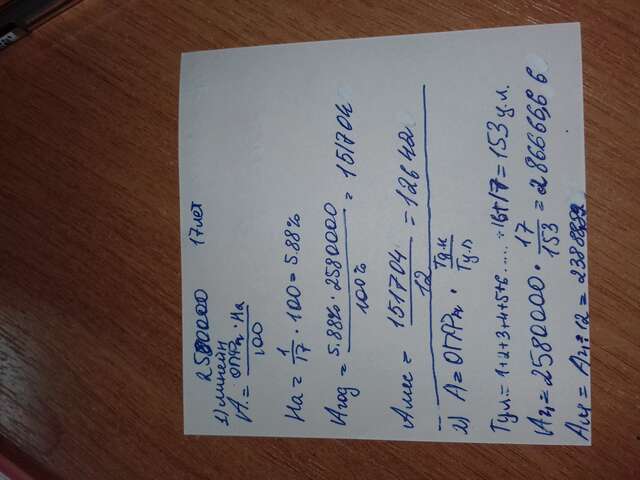 2580000 17 лет
1) линейн
A = ОПФп · На / 100
На = 1/17 · 100 = 5.88%
Aгод = 5.88% · 2580000 / 100% = 151704
Aмес = 151704 / 12 = 12642
2) A = ОПФп · Тд.н / Ту.л
Тул = 1+2+3+4+5+6 ..... +16+17 = 153 у.л.
Aч = 2580000 · 17/153 = 286666,66
Aм = Aч : 12 = 23888,89